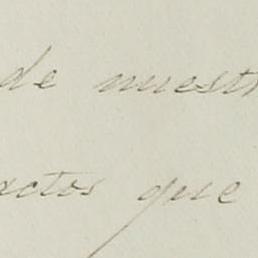 de nuestr
ctos que